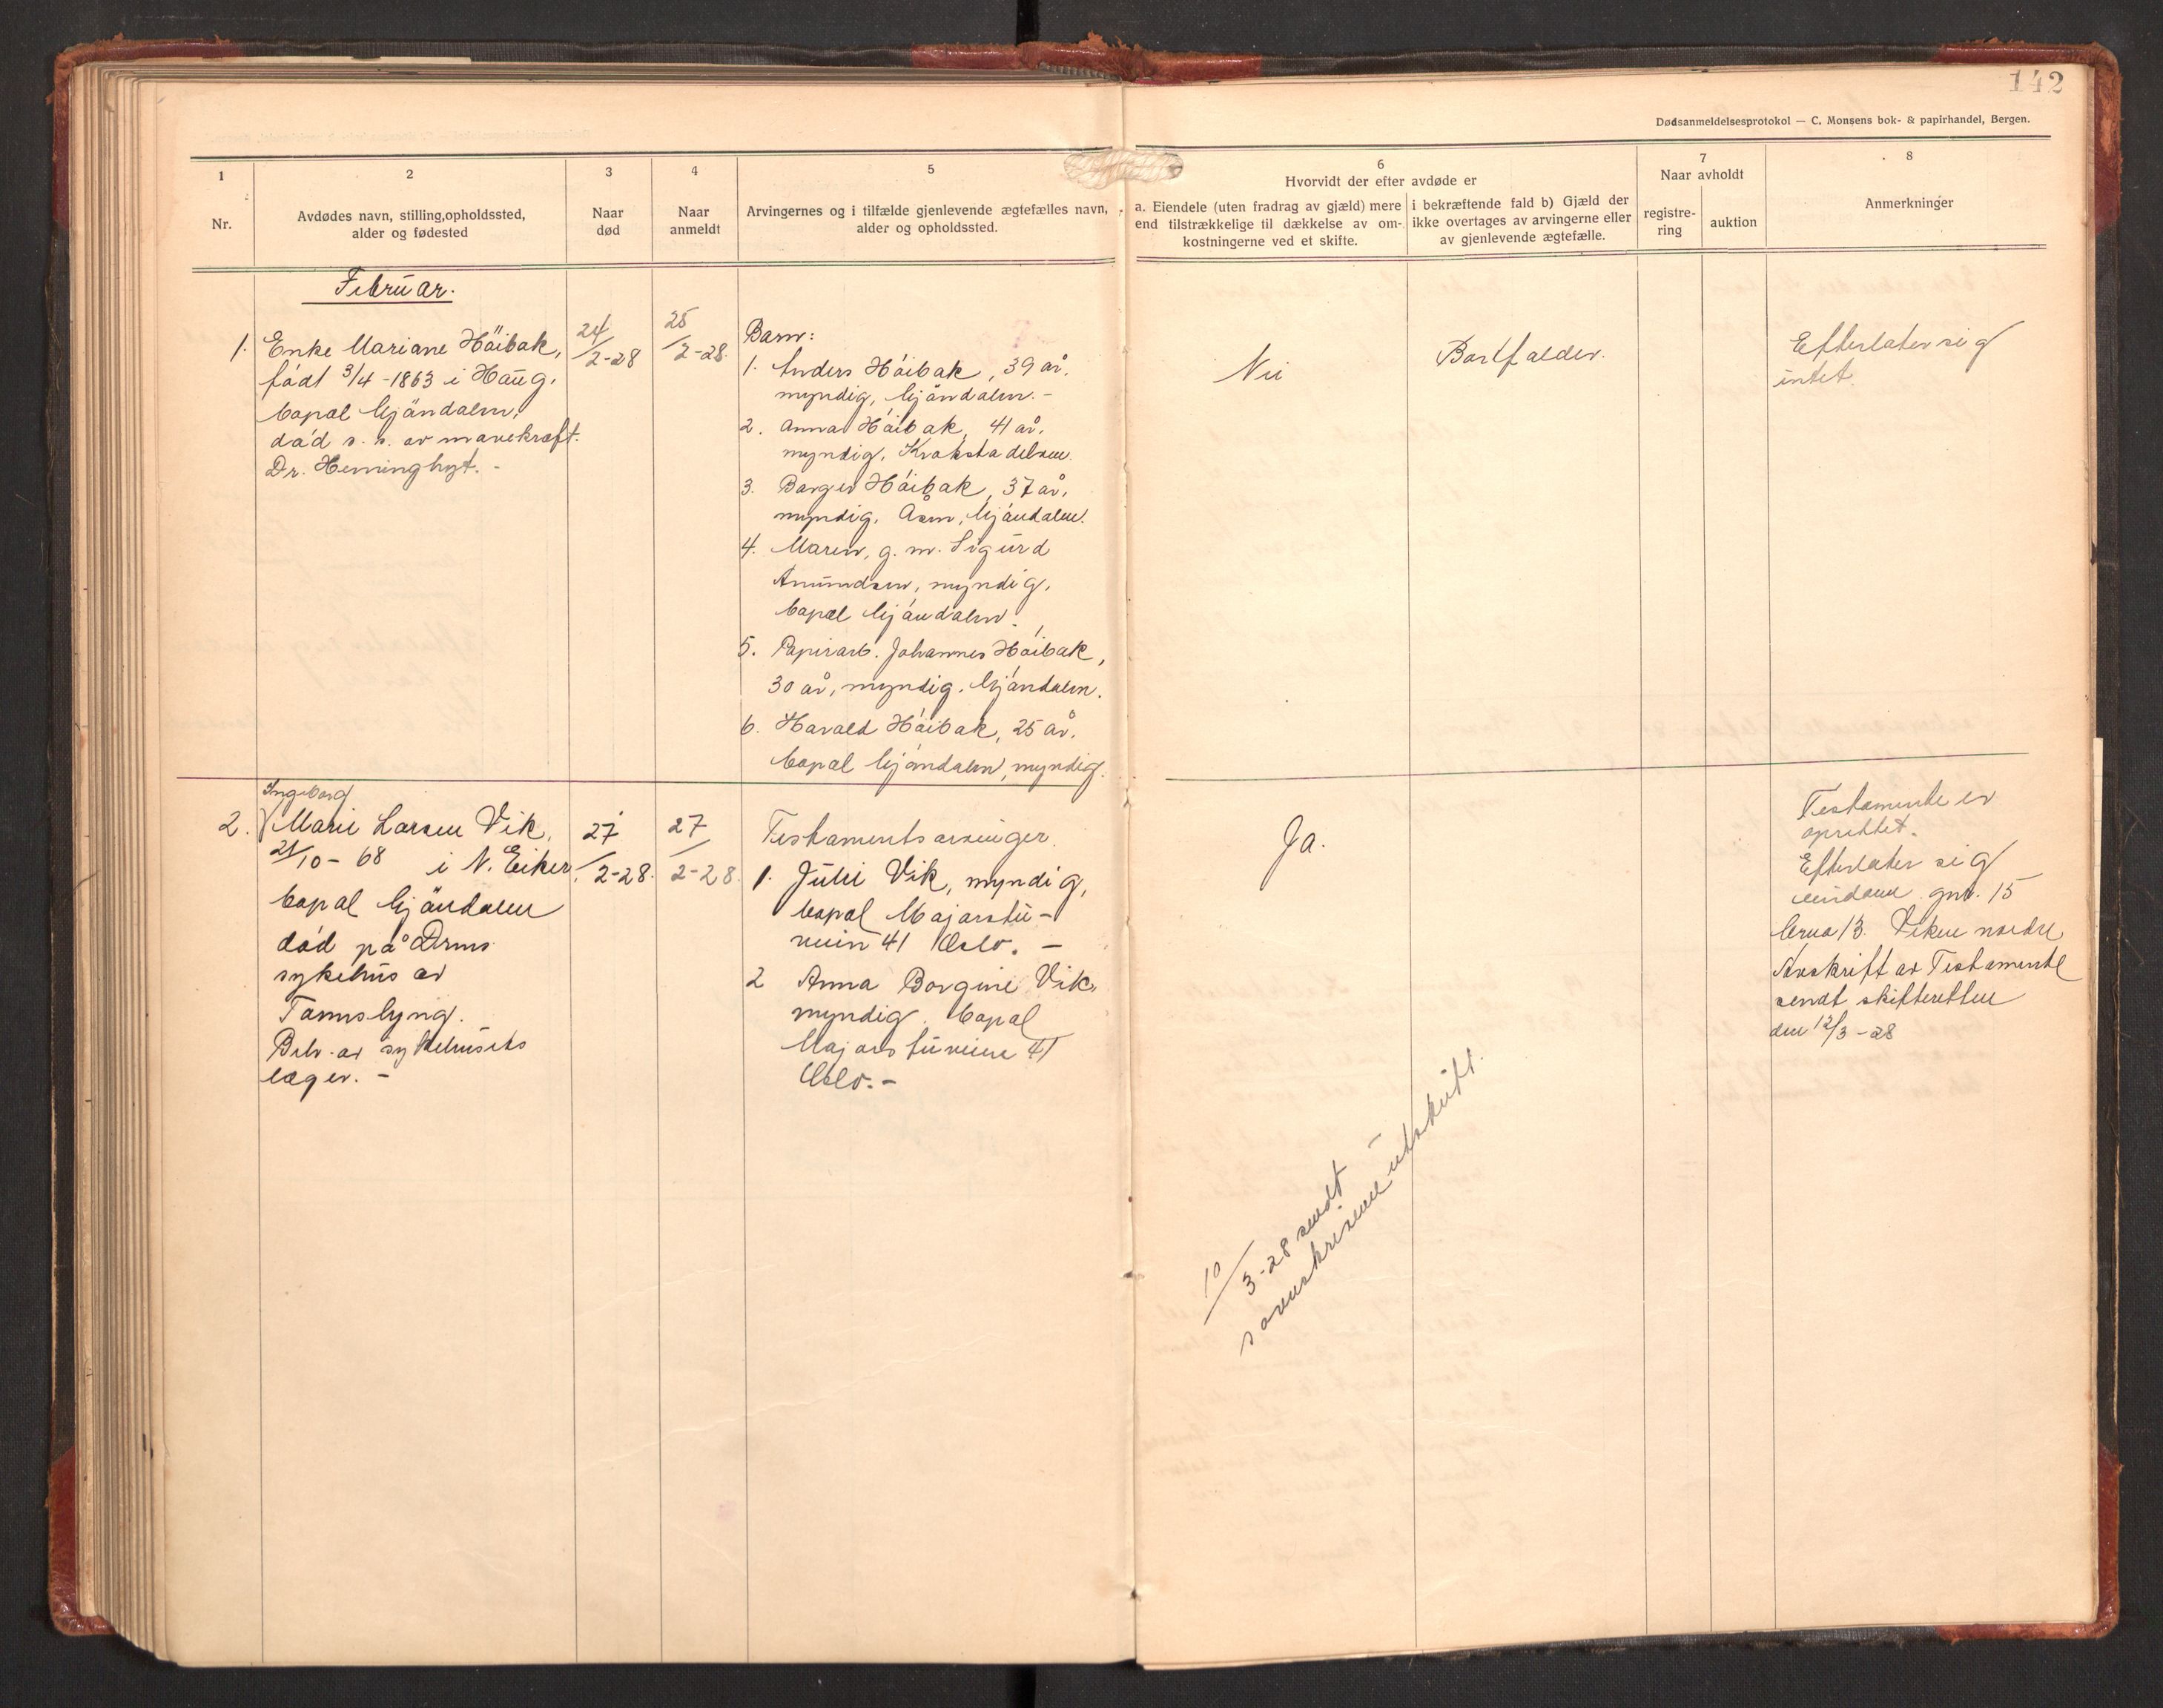 142
Dødsanmeldelsesprotokol — C. Monsens bok- & papirhandel, Bergen.
1
Nr.
2
Avdødes navn, stilling, opholdssted,
alder og fødested
3
Naar
død
4
Naar
anmeldt
5
Arvingernes og i tilfælde gjenlevende ægtefælles navn,
alder og opholdssted.
6
Hvorvidt der efter avdøde er
a. Eiendele (uten fradrag av gjæld) mere
end tilstrækkelige til dækkelse av om-
kostningerne ved et skifte.
i bekræftende fald b) Gjæld der
ikke overtages av arvingerne eller
av gjenlevende ægtefælle.
7
Naar avholdt
registre-
ring
auktion
8
Anmerkninger
Februar.
1. Enke Mariane Höibak,
født 3/4 - 1863 i Haug.
bopæl Mjöndalen,
død s. s. av mavekræft.
Dr.
24/2-28
25/2-28.
Barn:
1. Anders Höibak, 39 år.
myndig, Mjöndalen. -
2. Anna Höibak, 41 år.
myndig, Krokstadelven.
3. Borger Höibak, 37 år,
myndig. Åsen, Mjöndalen.
4. Maren, g. m. Sigurd
Amundsen, myndig.
bopæl Mjöndalen.
5. Papirarb. Johannes Höibak,
30 år, myndig. Mjöndalen.
6. Harald Höibak, 25 år.
bopæl Mjöndalen, myndig.
Nei
Bortfalder.
Efterlater sig
intet.
Ingeborg
2. Marie Larsen Vik,
21/10 - 68 i N. Eiker.
bopæl Mjöndalen
død på Drms
sykehus av
Tarmslyng.
Beh. av sykehusets
læger. -
27/2-28.
27/2-28.
Testamentsarvinger.
1. Julie Vik, myndig,
bopæl Majorstu-
veien 41 Oslo. -
2 Anna Borgine Vik,
myndig. bopæl
Majorstuveien 41
Oslo. -
Ja.
Testamente er
oprettet.
Efterlater sig
eiendom gnr. 15
bruk 13. Viken nordre
Avskrift av Testamente
sendt skifteretten
den 12/3 - 28
10/3-28 sendt
sorenskriveren utskrift.